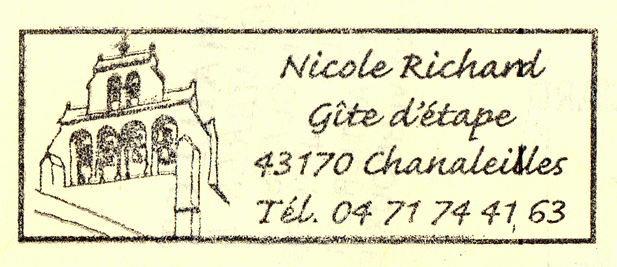 Nicole Richard
Gîte d'étape
43170 Chanaleilles
Tél. 04 71 74 41 63